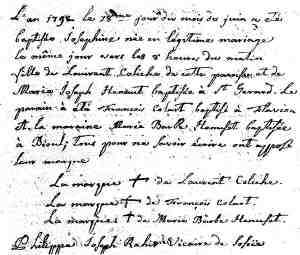 L'an 1792 le 18ème jour du mois de juin a été
baptisée Josephine née en légitime mariage
la même jour vers les 8 heures du matin
fille de Laurant Coliche de cette paroisse et de
Maria Joseph Hanaut baptisée à St Gerard. Le
parain a été François Colart baptisé à
et la maraine Marie Barb. Hanusset baptisée
à Bioul; tous pour ne savoir écrire ont apposé
leur marque
La marque + de Laurent Coliche.
La marque + de François Colart.
La marque + de Marie Barbe Hanusset.
Philippe Joseph Vicaire de